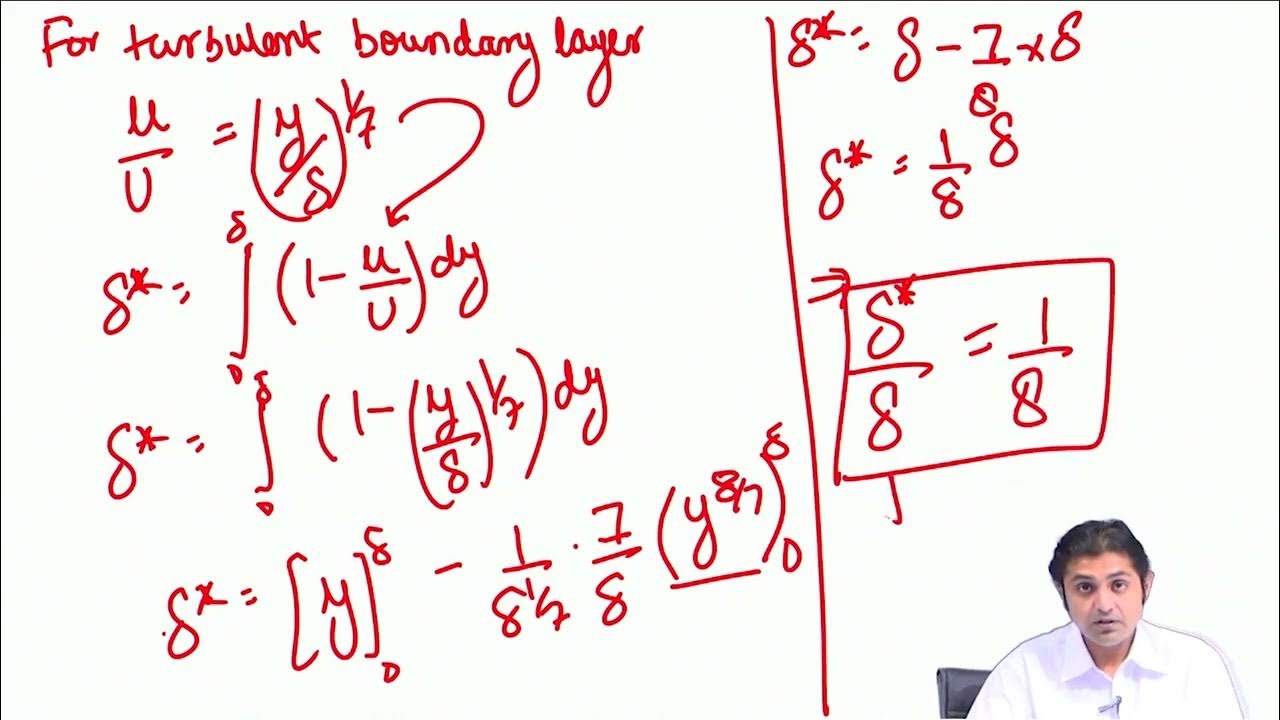 For turbulent boundary layer
u/U = (y/δ)^1/7
δ* = ∫₀^δ (1 - u/U) dy
δ* = ∫₀^δ (1 - (y/δ)^1/7) dy
δ* = [y]₀^δ - 1/δ^1/7 · 7/8 (y^8/7)₀^δ
δ* = δ - 7/8 × δ
δ* = 1/8 δ
⇒ δ*/δ = 1/8